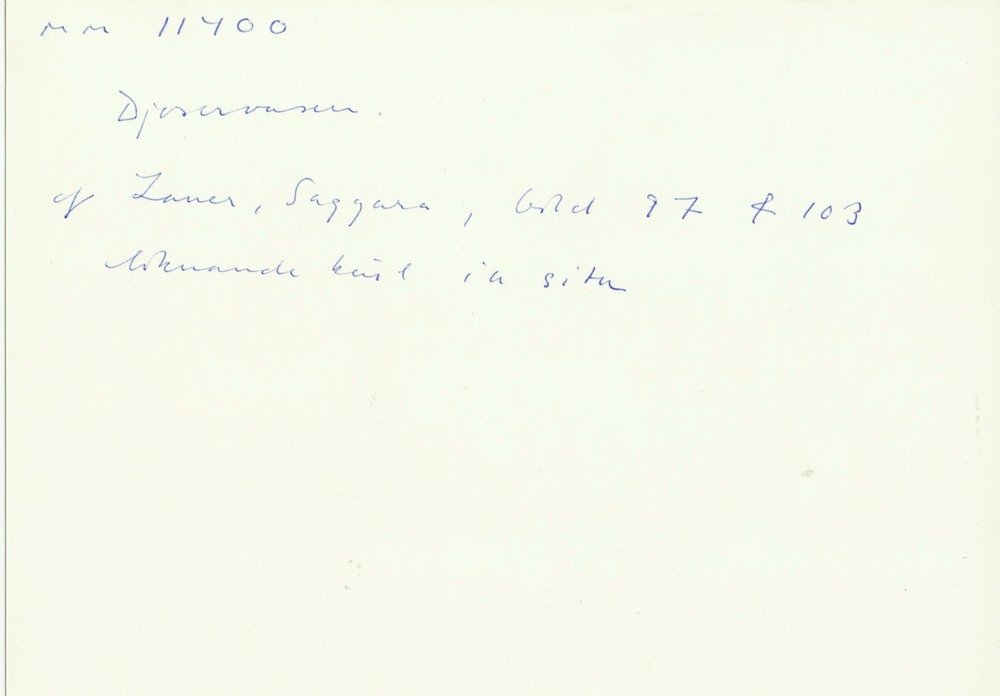 MM 11400
Djoservasen.
cf Lauer, Saqqara, bild 97 & 103
liknande kärl in situ